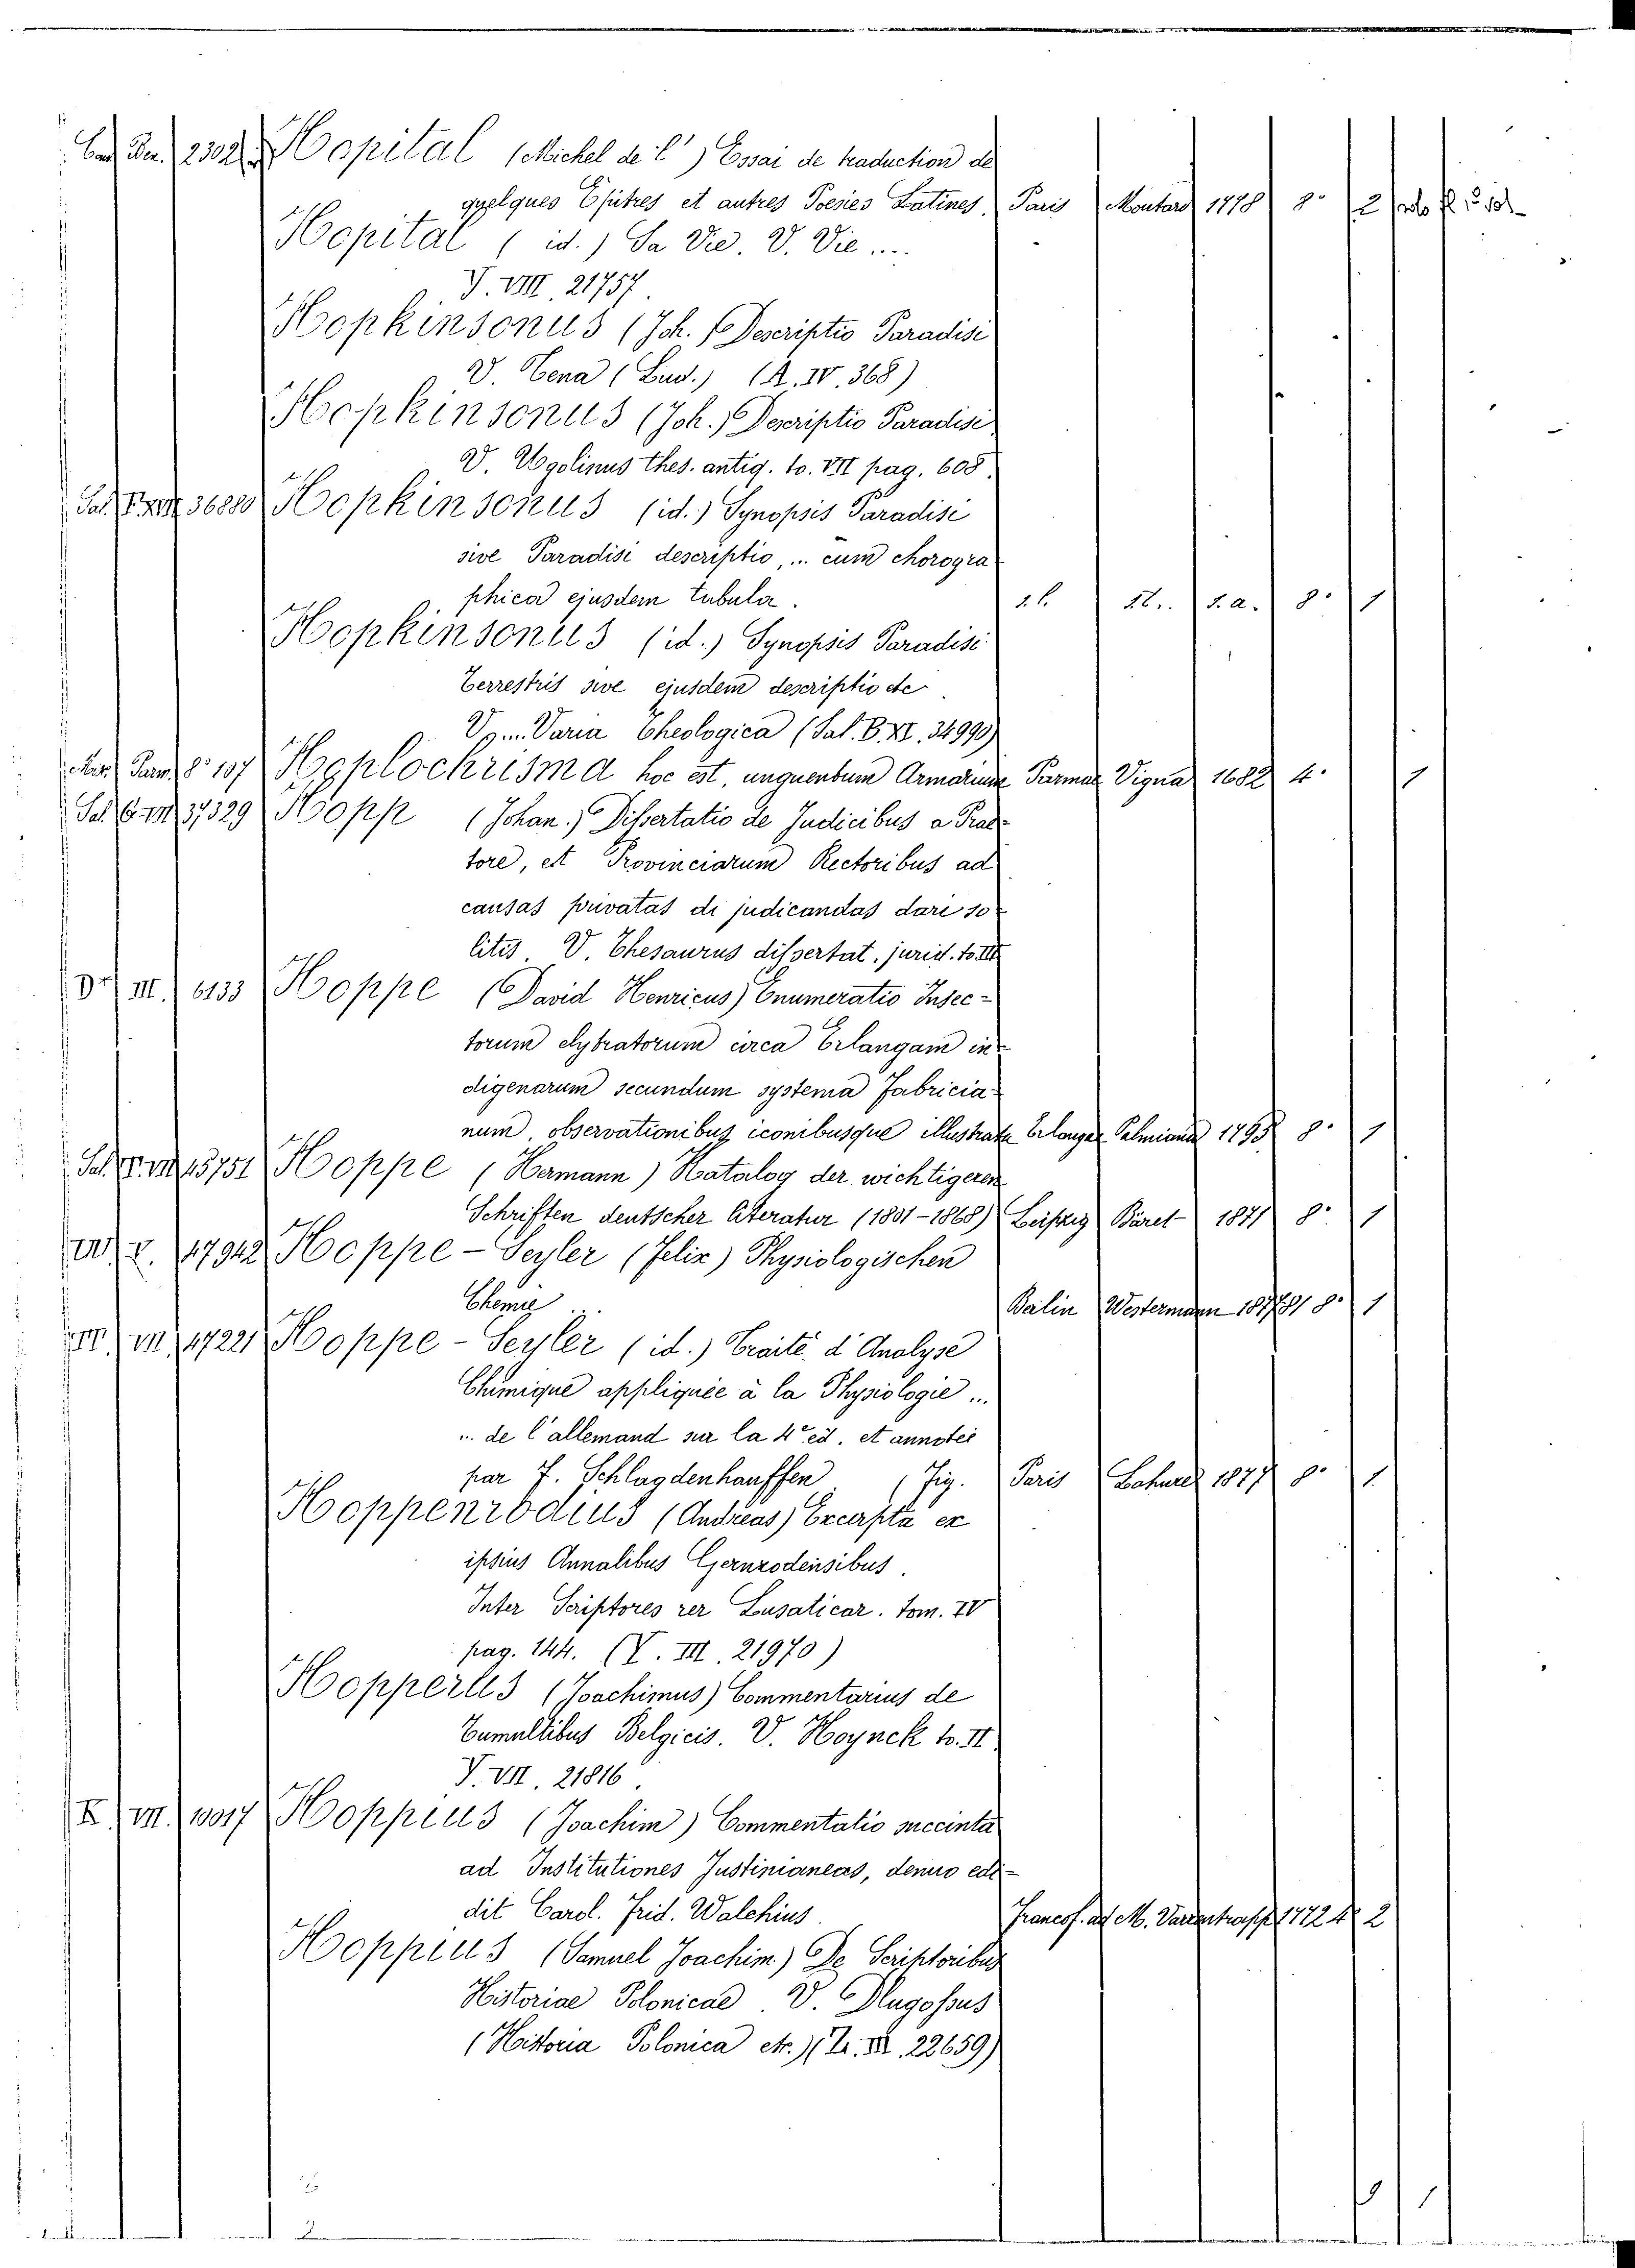 2302 Hopital (Michel de l') Essai de traduction de
quelques Epitres et autres Poesies Latines. Paris Moutard 1778 8° 2
Hopital (id.) Sa Vie. V. Vie ....
V. VIII. 21757.
Hopkinsonus (Joh.) Descriptio Paradisi
V. Cena (Lud.) (A. IV. 368)
Hopkinsonus (Joh.) Descriptio Paradisi
V. Ugolinus thes. antiq. to. VII pag. 608.
36880 Hopkinsonus (id.) Synopsis Paradisi
sive Paradisi descriptio, ... cum chorogra
phica ejusdem tabula. s. l. s. a. 8° 1
Hopkinsonus (id.) Synopsis Paradisi
Terrestris sive ejusdem descriptio etc.
Varia Theologica (Sal. B. XI. 34990)
Parm. 8° 107 Hoplochrisma hoc est, unguentum Armarium Parmae Vigna 1682 4° 1
Sal. 37329 Hopp (Johan.) Dissertatio de Judicibus a Prae-
tore, et Provinciarum Rectoribus ad
causas privatas di judicandas dari so-
litis. V. Thesaurus dissertat. jurid. to. III
III. 6133 Hoppe (David Henricus) Enumeratio Insec-
torum elytratorum circa Erlangam in-
digenarum secundum systema Fabricia-
num, observationibus iconibusque illustrata Erlangae Palmianae 1795 8° 1
15751 Hoppe (Hermann) Katalog der wichtigeren
Schriften deutscher Literatur (1801-1868) Leipzig 1871 8° 1
17942 Hoppe-Seyler (Felix) Physiologischen
Chemie ... Berlin Westermann 8° 1
VII. 17221 Hoppe-Seyler (id.) Traité d'Analyse
Chimique appliquée à la Physiologie ...
... de l'allemand sur la 4e ed. et annotée
par F. Schlagdenhauffen (Fig. Paris 1877 8° 1
Hoppenrodius (Andreas) Excerpta ex
ipsius Annalibus Gernrodensibus.
Inter Scriptores rer Lusaticar. tom. IV
pag. 144. (V. III. 21970)
Hopperus (Joachimus) Commentarius de
Tumultibus Belgicis. V. Hoynck to. II
V. VII. 21816.
X. VII. 10017 Hoppius (Joachim) Commentatio succinta
ad Institutiones Justinianeas, denuo edi-
dit Carol. Frid. Walchius. Francof. ad M. Varrentrapp 1772 4° 2
Hoppius (Samuel Joachim.) De Scriptoribus
Historiae Polonicae. V. Dlugossus
(Historia Polonica etc.) 22659)